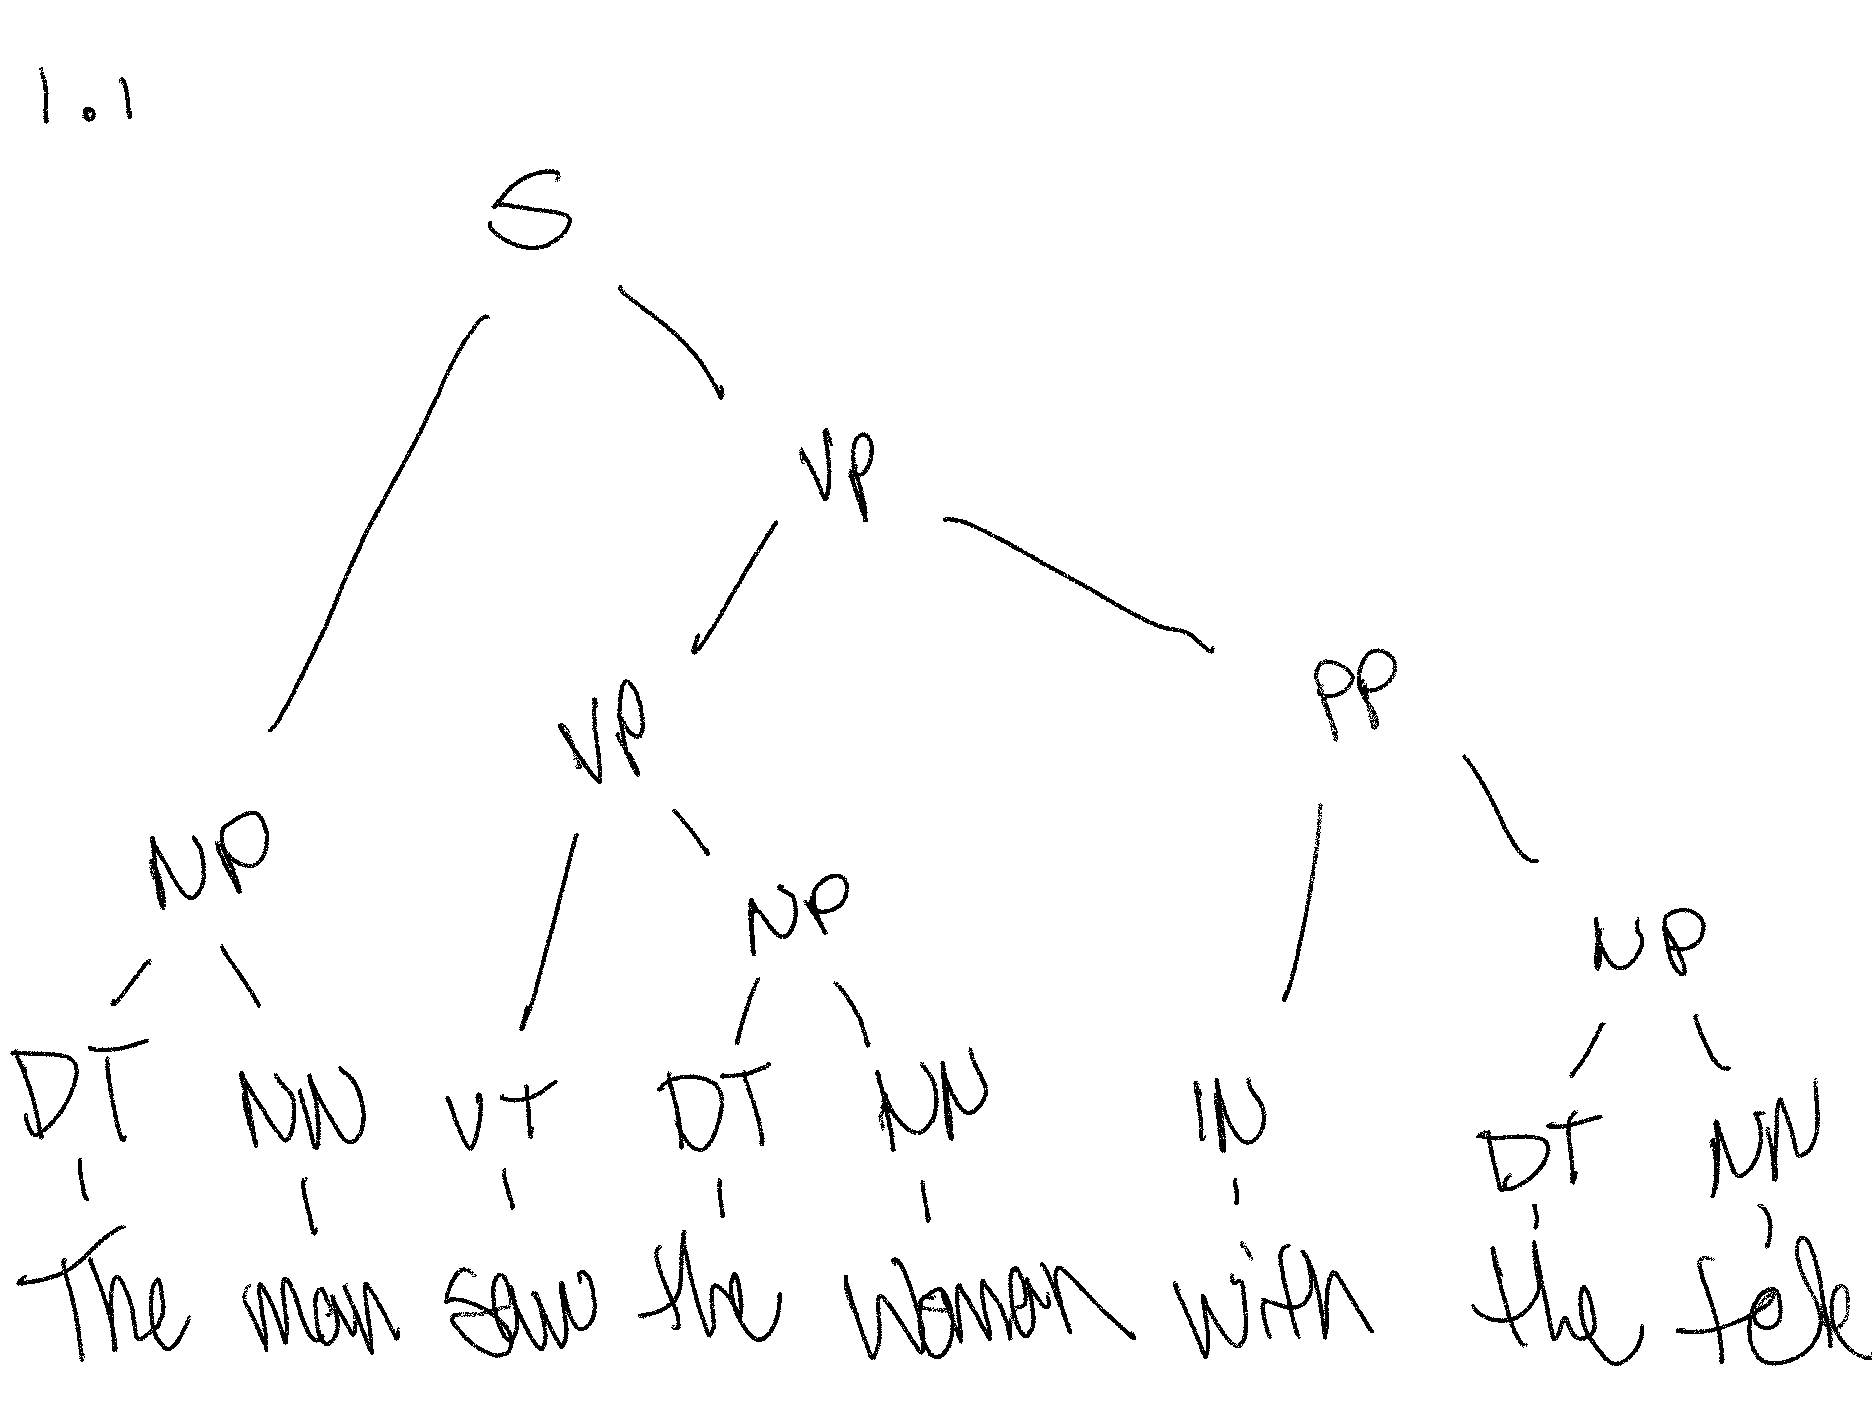 1.1
S
VP
VP PP
NP NP NP
DT NN VT DT NN IN DT NN
The man saw the woman with the tele